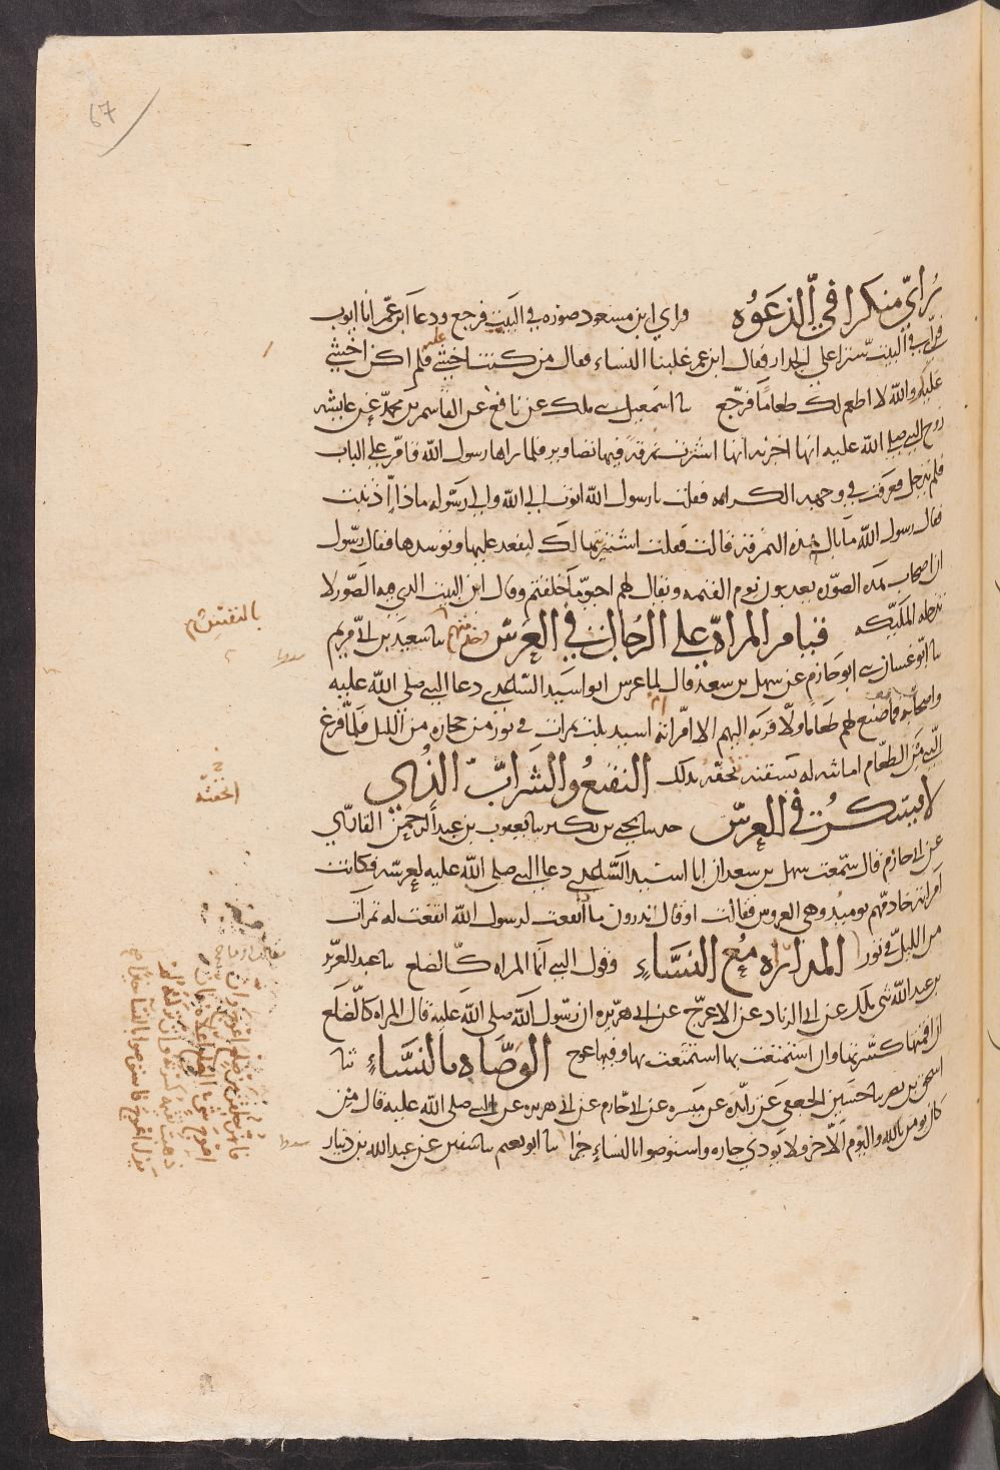 67
راي منكرا في الدعوه وراي ابن مسعود صوره في البيت فرجع ودعا ابن عمر ابا ايوب
فراي في البيت سترا على الجدار فقال ابن عمر غلبنا النساء فقال من كنت اخشي عليه فلم اكن اخشي
عليك والله لا اطعم لك طعاما فرجع نا اسمعيل ني ملك عن نافع عن القاسم بن محمد عن عايشه
زوج النبي صلى الله عليه انها اخبرته انها اشترت نمرقه فيها تصاوير فلما راها رسول الله قام على الباب
فلم يدخل فعرفت في وجهه الكراهه فقلت يا رسول الله اتوب الى الله والى رسوله ماذا اذنبت
فقال رسول الله ما بال هذه النمرقه قالت فقلت اشتريتها لك لتقعد عليها وتوسدها فقال رسول
ان اصحاب هذه الصور يعذبون يوم القيمه ويقال لهم احيوا ما خلقتم وقال ان البيت الذي فيه الصور لا
تدخله المليكه قيام المراه على الرجال في العرس وخدمتهم نا سعيد بن ابي مريم
نا ابو غسان ني ابو حازم عن سهل بن سعد قال لما عرس ابو اسيد الساعدي دعا النبي صلى الله عليه
واصحابه فما صنع لهم طعاما ولا قربه اليهم الا امراته ام اسيد بلت تمرات في تور من حجاره من الليل فلما فرغ
النبي من الطعام اماثته له فسقته تحفه بذلك النقيع والشراب الذي
لا يسكر في العرس حدنا يحيى بن بكير نا يعقوب بن عبد الرحمن القاري
عن ابي حازم قال سمعت سهل بن سعد ان ابا اسيد الساعدي دعا النبي صلى الله عليه لعرسه فكانت
امراته خادمهم يوميذ وهي العروس فقالت او قال اتدرون ما انقعت لرسول الله انقعت له تمرات
من الليل في تور المداراه مع النساء وقول النبي انما المراه كالضلع نا عبد العزيز
بن عبد الله ني ملك عن ابي الزناد عن الاعرج عن ابي هريره ان رسول الله صلى الله عليه قال المراه كالضلع
ان اقمتها كسرتها وان استمتعت بها استمتعت بها وفيها عوج الوصاه بالنساء نا
اسحق بن نصر نا حسين الجعفي عن زايده عن ميسره عن ابي حازم عن ابي هريره عن النبي صلى الله عليه قال من
كان يومن بالله واليوم الاخر فلا يوذي جاره واستوصوا بالنساء خيرا نا ابو نعيم نا سفين عن عبد الله بن دينار